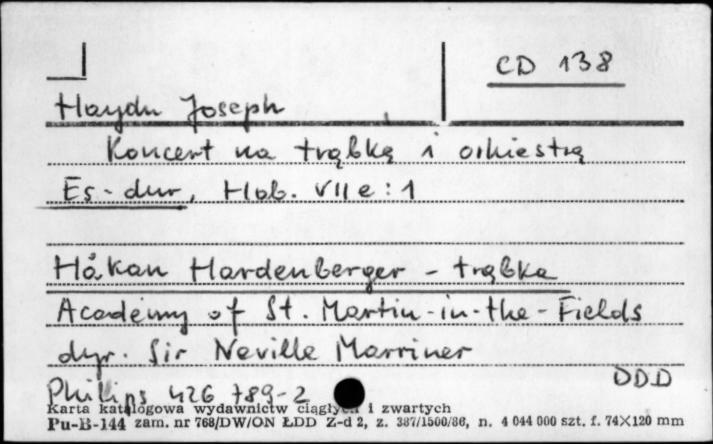 CD 138
Haydn Joseph
Koncert na trąbkę i orkiestrę
Es-dur, Hob. VII e : 1
Håkan Hardenberger - trąbka
Academy of St. Martin-in-the-Fields
dyr. Sir Neville Marriner
DDD
Philips 426 789-2
Karta katalogowa wydawnictw ciągłych i zwartych
Pu-B-144 zam. nr 768/DW/ON ŁDD Z-d 2, z. 387/1500/86, n. 4 044 000 szt. f. 74×120 mm